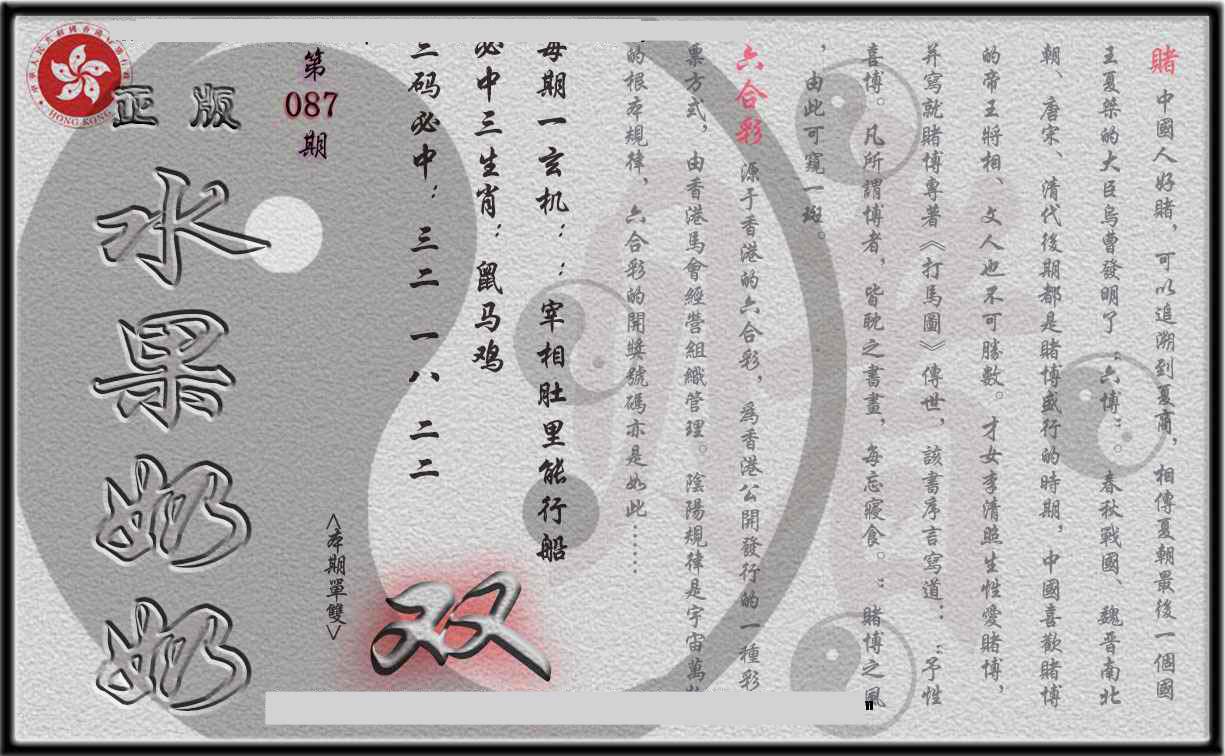 賭 中國人好賭，可以追溯到夏商，相傳夏朝最後一個國
王夏桀的大臣烏曹發明了“六博”。春秋戰國、魏晉南北
朝、唐宋、清代後期都是賭博盛行的時期，中國喜歡賭博
的帝王將相、文人也不可勝數。才女李清照生性愛賭博，
并寫就賭博專著《打馬圖》傳世，該書序言寫道：“予性
喜博。凡所謂博者，皆耽之晝晝，每忘寢食。”賭博之風
，由此可窺一斑。
六合彩 源于香港的六合彩，為香港公開發行的一種彩
票方式，由香港馬會經營組織管理。陰陽規律是宇宙萬
的根本規律，六合彩的開獎號碼亦是如此……
每期一玄机：：宰相肚里能行船
必中三生肖：鼠马鸡
三码必中：三二 一八 二二
第
087
期
<本期單雙>
双
正版
水果奶奶
HONG KONG